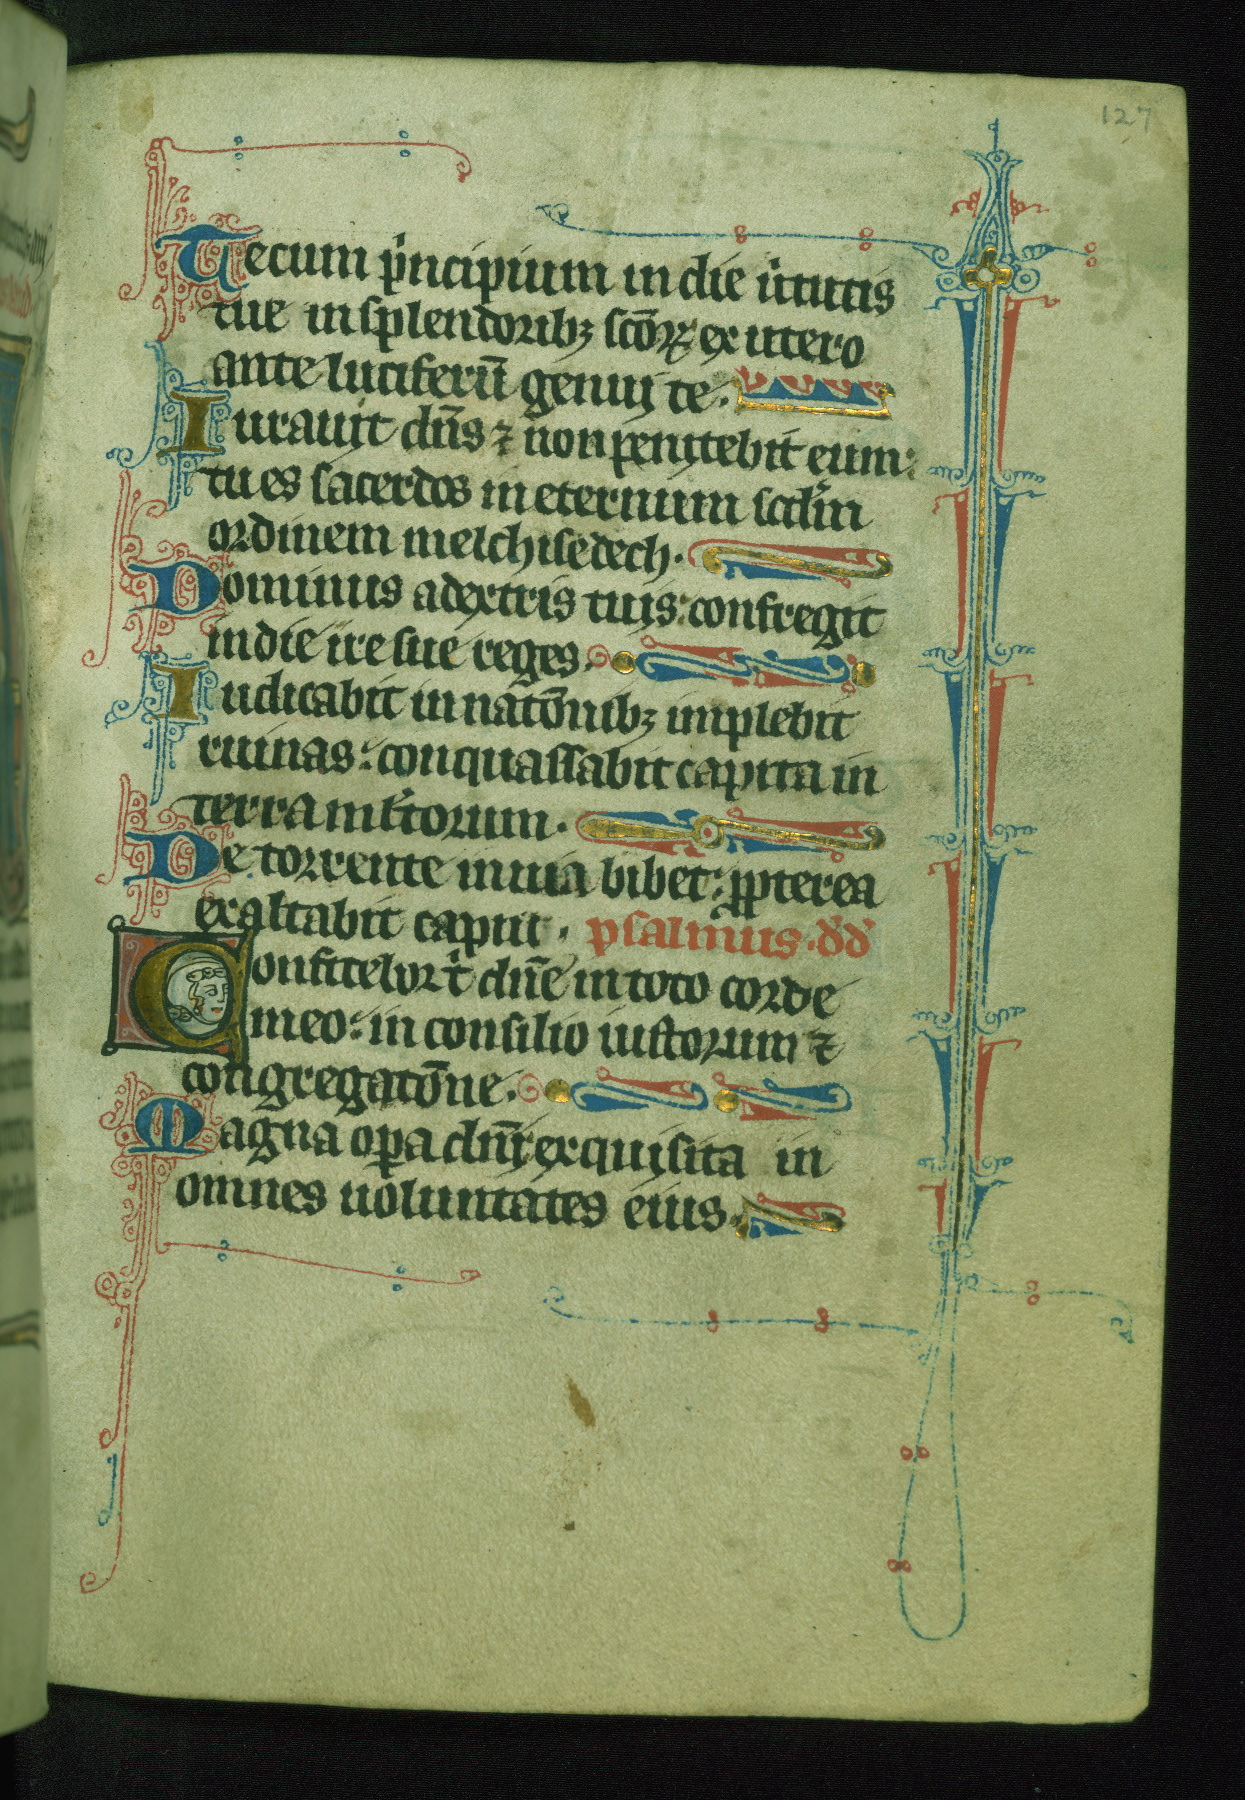 127
Tecum p'ncipium in die u'tutis
tue in splendorib; sc̄oꝝ ex utero
ante luciferū genui te.
Iurauit dn̄s ⁊ non penitebit eum:
tu es sacerdos in eternum scd'm
ordinem melchisedech.
Dominus a dextris tuis: confregit
in die ire sue reges.
Iudicabit in natōnib; implebit
ruinas: conquassabit capita in
terra mltorum.
De torrente in uia bibet: ꝓpterea
exaltabit caput. psalmus. dd
Confitebor t' dn̄e in toto corde
meo: in consilio iustorum ⁊
congregatōne.
Magna oꝑa dn̄i exquisita in
omnes uoluntates eius.